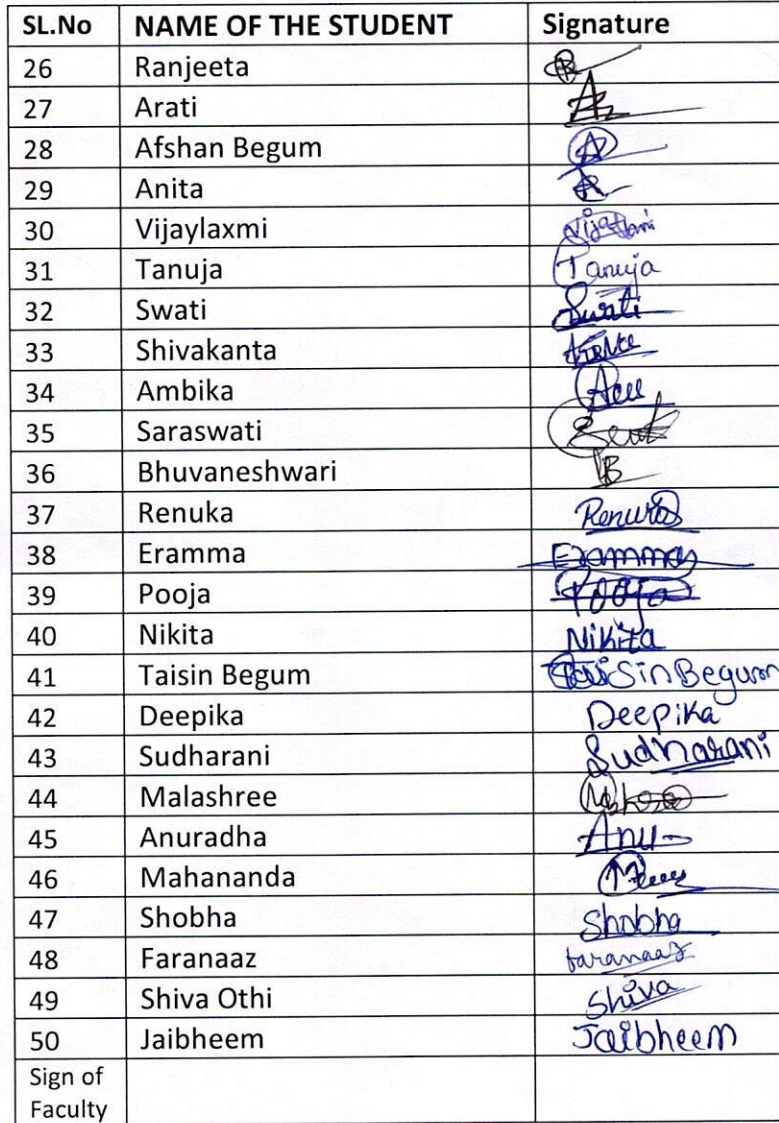 SL.No NAME OF THE STUDENT Signature
26 Ranjeeta R
27 Arati A
28 Afshan Begum A
29 Anita A
30 Vijaylaxmi
31 Tanuja Tanuja
32 Swati Swati
33 Shivakanta
34 Ambika
35 Saraswati
36 Bhuvaneshwari B
37 Renuka Renuka
38 Eramma Eramma
39 Pooja Pooja
40 Nikita Nikita
41 Taisin Begum TaiSin Begum
42 Deepika Deepika
43 Sudharani Sudharani
44 Malashree
45 Anuradha Anu
46 Mahananda
47 Shobha Shobha
48 Faranaaz faranaaz
49 Shiva Othi Shiva
50 Jaibheem Jaibheem
Sign of
Faculty